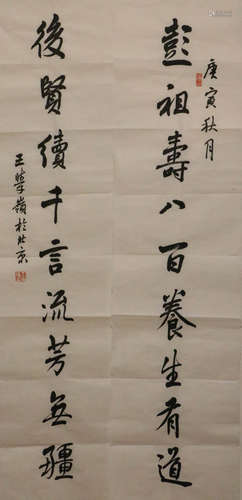 庚寅秋月
彭祖壽八百養生有道
後賢續千言流芳無疆
王學嶺於北京